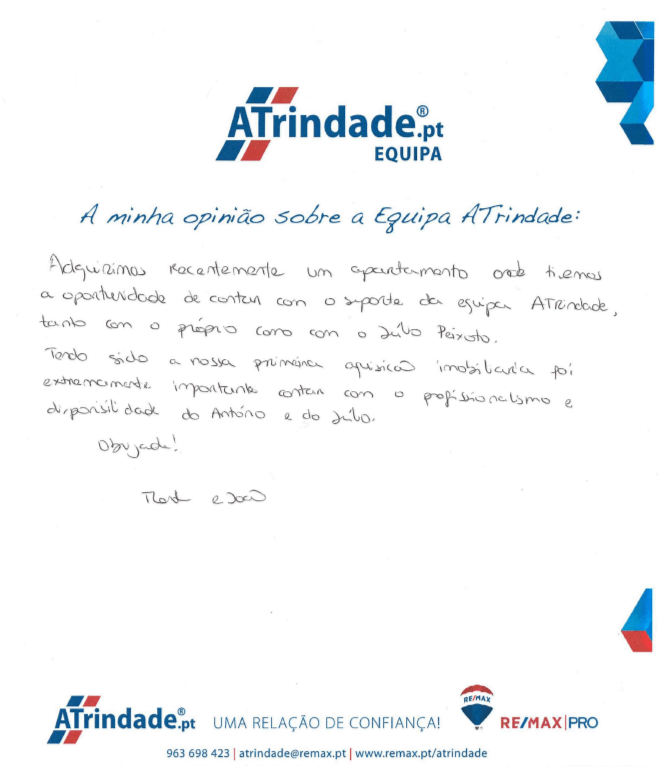 ATrindade.pt®
EQUIPA
A minha opinião sobre a Equipa ATrindade:
Adquirimos recentemente um apartamento onde tivemos
a oportunidade de contar com o suporte da equipa ATrindade,
tanto com o próprio como com o Júlio Peixoto.
Tendo sido a nossa primeira aquisição imobiliaria foi
extremamente importante contar com o profissionalismo e
disponibilidade do António e do Júlio.
Obrigada!
e João
ATrindade.pt® UMA RELAÇÃO DE CONFIANÇA! RE/MAX RE/MAX|PRO
963 698 423 | atrindade@remax.pt | www.remax.pt/atrindade